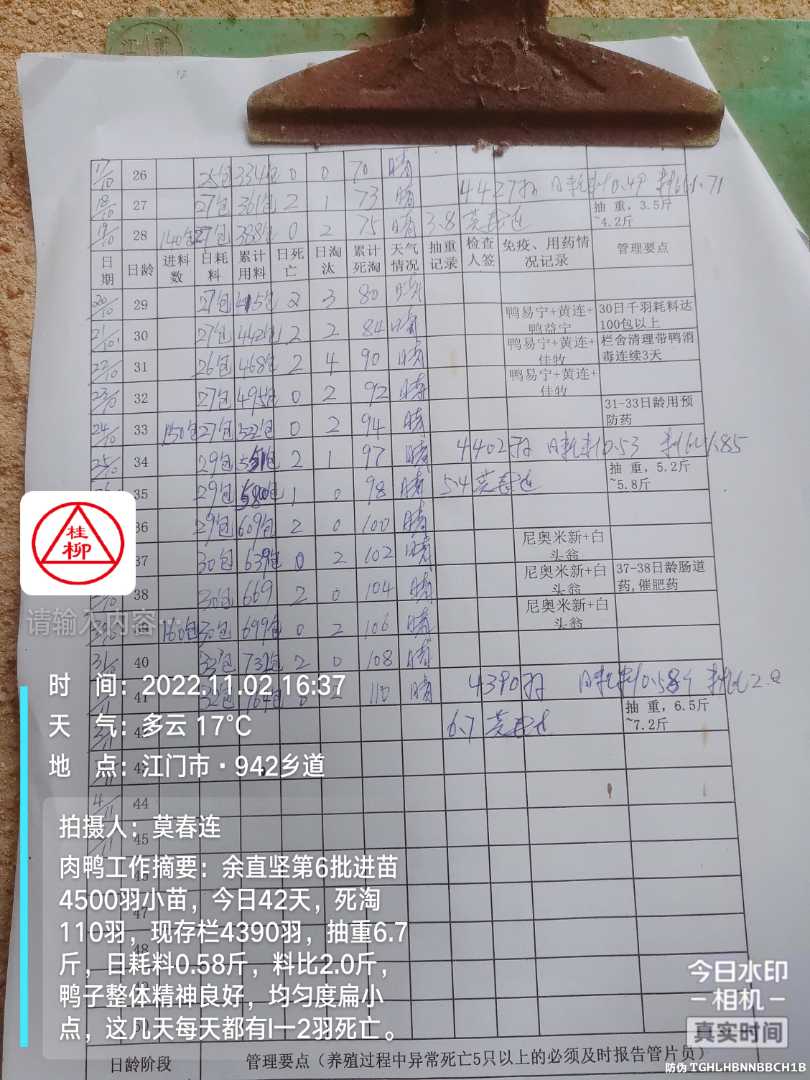 17/10 26 25包 334包 0 0 70 晴
4427羽 日耗料0.49 料比1.71
18/10 27 27包 361包 2 1 73 晴
抽 重，3.5斤
~4.2斤
19/10 28 140包 27包 388包 0 2 75 晴 3.8 莫春连
日期 日龄 进料数 日耗料 累计用料 日死亡 日淘汰 累计死淘 天气情况 抽重记录 检查人签 免疫、用药情况记录 管理要点
20/10 29 27包 415包 2 3 80 晴
鸭易宁+黄连+鸭益宁
30日千羽耗料达100包以上
21/10 30 27包 442包 2 2 84 晴
鸭易宁+黄连+佳牧
栏舍清理带鸭消毒连续3天
22/10 31 26包 468包 2 4 90 晴
鸭易宁+黄连+佳牧
23/10 32 27包 495包 0 2 92 晴
31-33日龄用预防药
24/10 33 150包 27包 522包 0 2 94 晴
4402羽 日耗料0.53 料比1.85
25/10 34 29包 551包 2 1 97 晴
抽 重，5.2斤
~5.8斤
35 29包 580包 1 0 98 晴 5.4 莫春连
36 29包 609包 2 0 100 晴
尼奥米新+白头翁
37 30包 639包 0 2 102 晴
尼奥米新+白头翁
37-38日龄肠道药,催肥药
38 30包 669 2 0 104 晴
尼奥米新+白头翁
160包 30包 699包 0 2 106 晴
31/10 40 32包 731包 2 0 108 晴
4390羽 日耗料0.584 料比2.0
41 32包 110 晴
抽 重，6.5斤
~7.2斤
6.7 莫春连
4/11 44
45
47
48
日龄阶段 管理要点（养殖过程中异常死亡5只以上的必须及时报告管片员）
桂
柳
请输入内容
时 间：2022.11.02 16:37
天 气：多云 17℃
地 点：江门市·942乡道
拍摄人：莫春连
肉鸭工作摘要：余直坚第6批进苗
4500羽小苗，今日42天，死淘
110羽，现存栏4390羽，抽重6.7
斤，日耗料0.58斤，料比2.0斤，
鸭子整体精神良好，均匀度扁小
点，这几天每天都有l一2羽死亡。
今日水印
相机
真实时间
防伪 TGHLHBNNBBCH1B